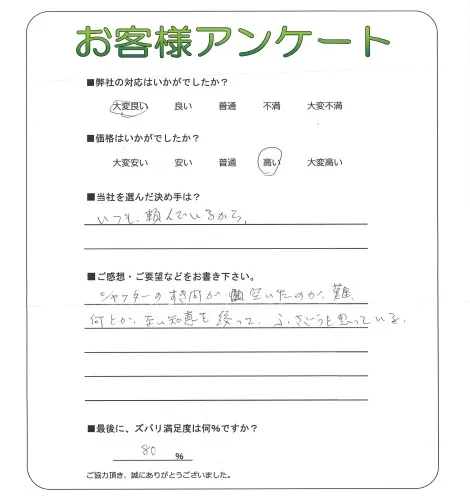 お客様アンケート
■弊社の対応はいかがでしたか？
大変良い 良い 普通 不満 大変不満
■価格はいかがでしたか？
大変安い 安い 普通 高い 大変高い
■当社を選んだ決め手は？
いつも、頼んでいるから。
■ご感想・ご要望などをお書き下さい。
シャッターのすき間が 空いたのが、難。
何とか、ない知恵を絞って、ふさごうと思っている。
■最後に、ズバリ満足度は何%ですか？
80 %
ご協力頂き、誠にありがとうございました。